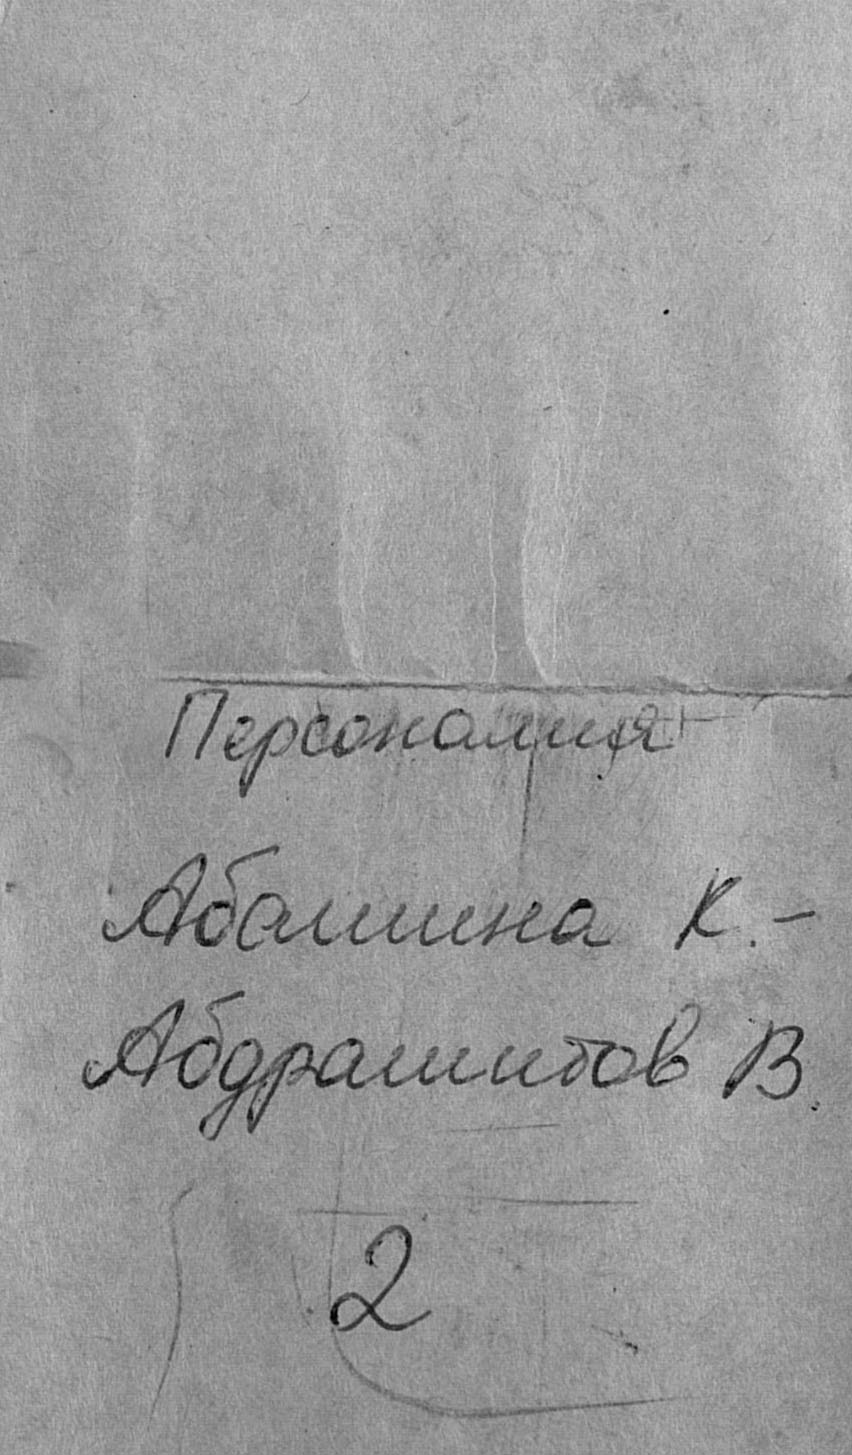 Персоналия
Абашина К. –
Абдрашитов В.
2